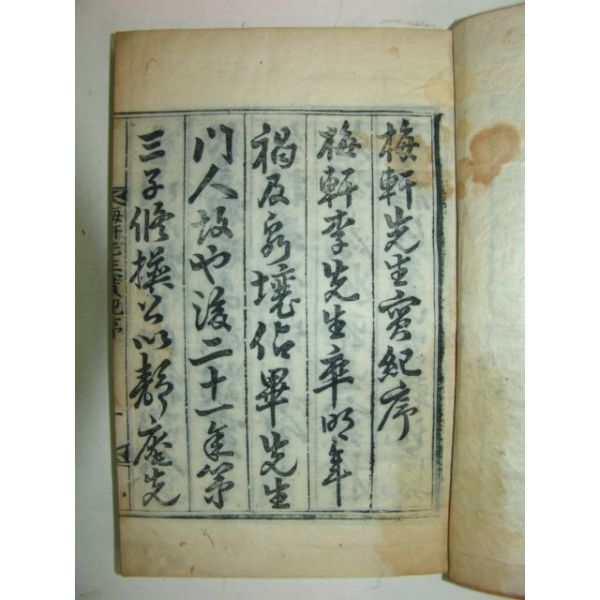 梅軒先生實紀序
梅軒李先生卒明年
禍及泉壤佔畢先生
門人故也後二十一年第
三子修撰公以靜庵先
梅軒先生實紀序
一